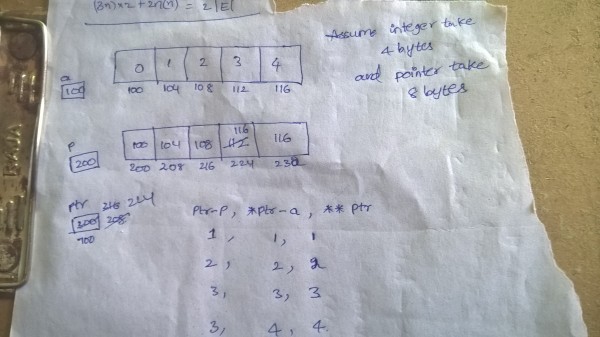 (8n)*2 + 2n(n) = 2|E|
Assume integer take
4 bytes
and pointer take
8 bytes
0 1 2 3 4
a
100
100 104 108 112 116
116
100 104 108 112 116
P
200
200 208 216 224 232
ptr 216 224
208
700
Ptr-P, *ptr-a, ** ptr
1, 1, 1
2, 2, 2
3, 3, 3
3, 4, 4